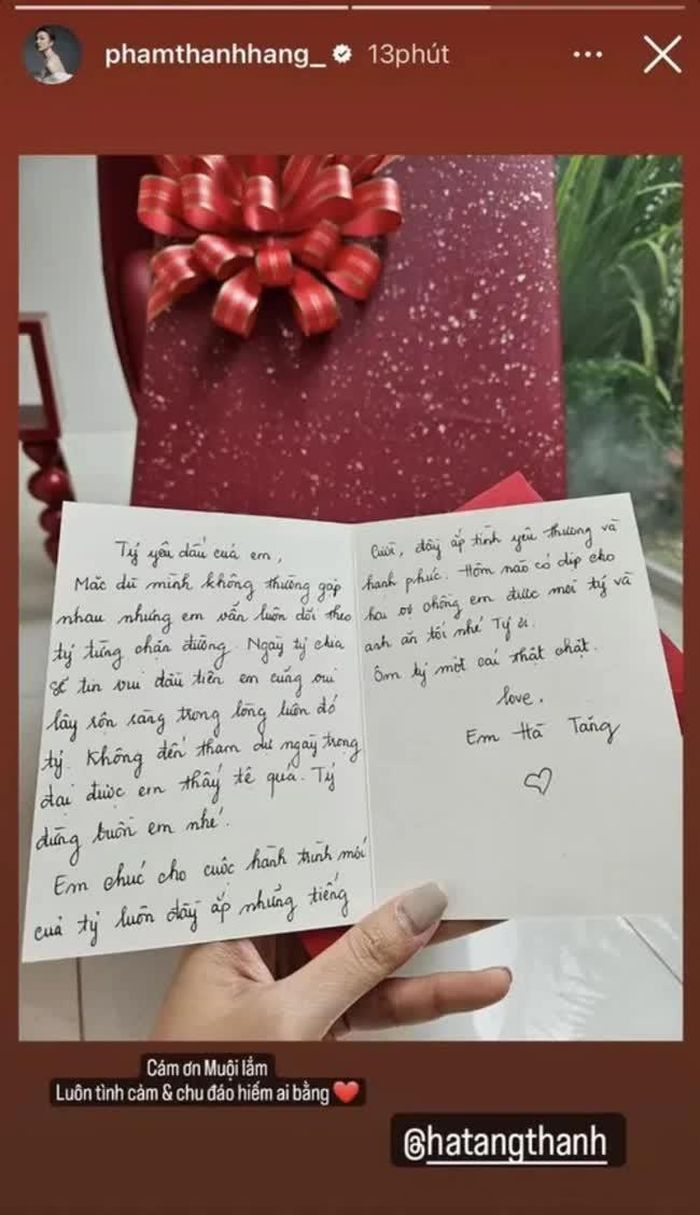 phamthanhhang_ 13phút
Tỷ yêu dấu của em,
Mặc dù mình không thường gặp
nhau nhưng em vẫn luôn dõi theo
tỷ từng chặn đường. Ngày tỷ chia
sẻ tin vui đầu tiên em cũng vui
lây rộn ràng trong lòng luôn đó
tỷ. Không đến tham dự ngày trọng
đại được em thấy tệ quá. Tỷ
đừng buồn em nhé.
Em chúc cho cuộc hành trình mới
của tỷ luôn đầy ắp những tiếng
cười, đầy ắp tình yêu thương và
hạnh phúc. Hôm nào có dịp cho
hai vợ chồng em được mời tỷ và
anh ăn tối nhé Tỷ ơi.
Ôm tỷ một cái thật chặt.
love,
Em Hà Tăng
Cám ơn Muội lắm
Luôn tình cảm & chu đáo hiếm ai bằng❤️
@hatangthanh